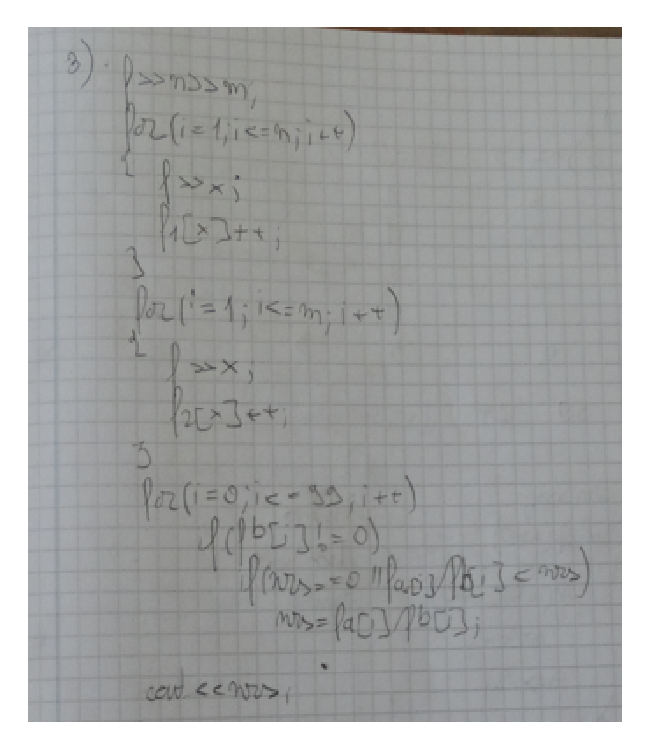 3). f>>n>>m;
for(i=1;i<=n;i++)
{
f>>x;
f1[x]++;
}
for(i=1;i<=m;i++)
{
f>>x;
f2[x]++;
}
for(i=0;i<=99;i++)
if(fb[i]!=0)
if(nrs==0||fa[i]/fb[i]<nrs)
nrs=fa[i]/fb[i];
cout<<nrs;